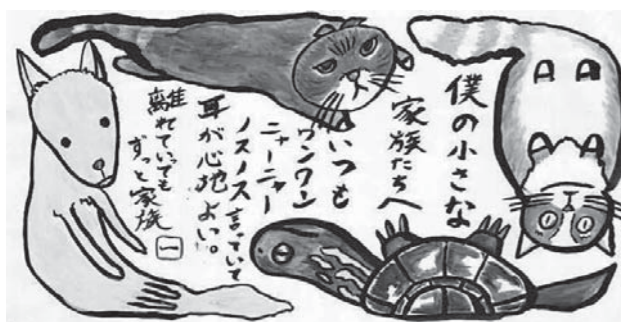 僕の小さな
家族たちへ
いつも
ワンワン
ニャーニャー
ノスノス言っていて
耳が心地よい。
離れていても
ずっと家族
一